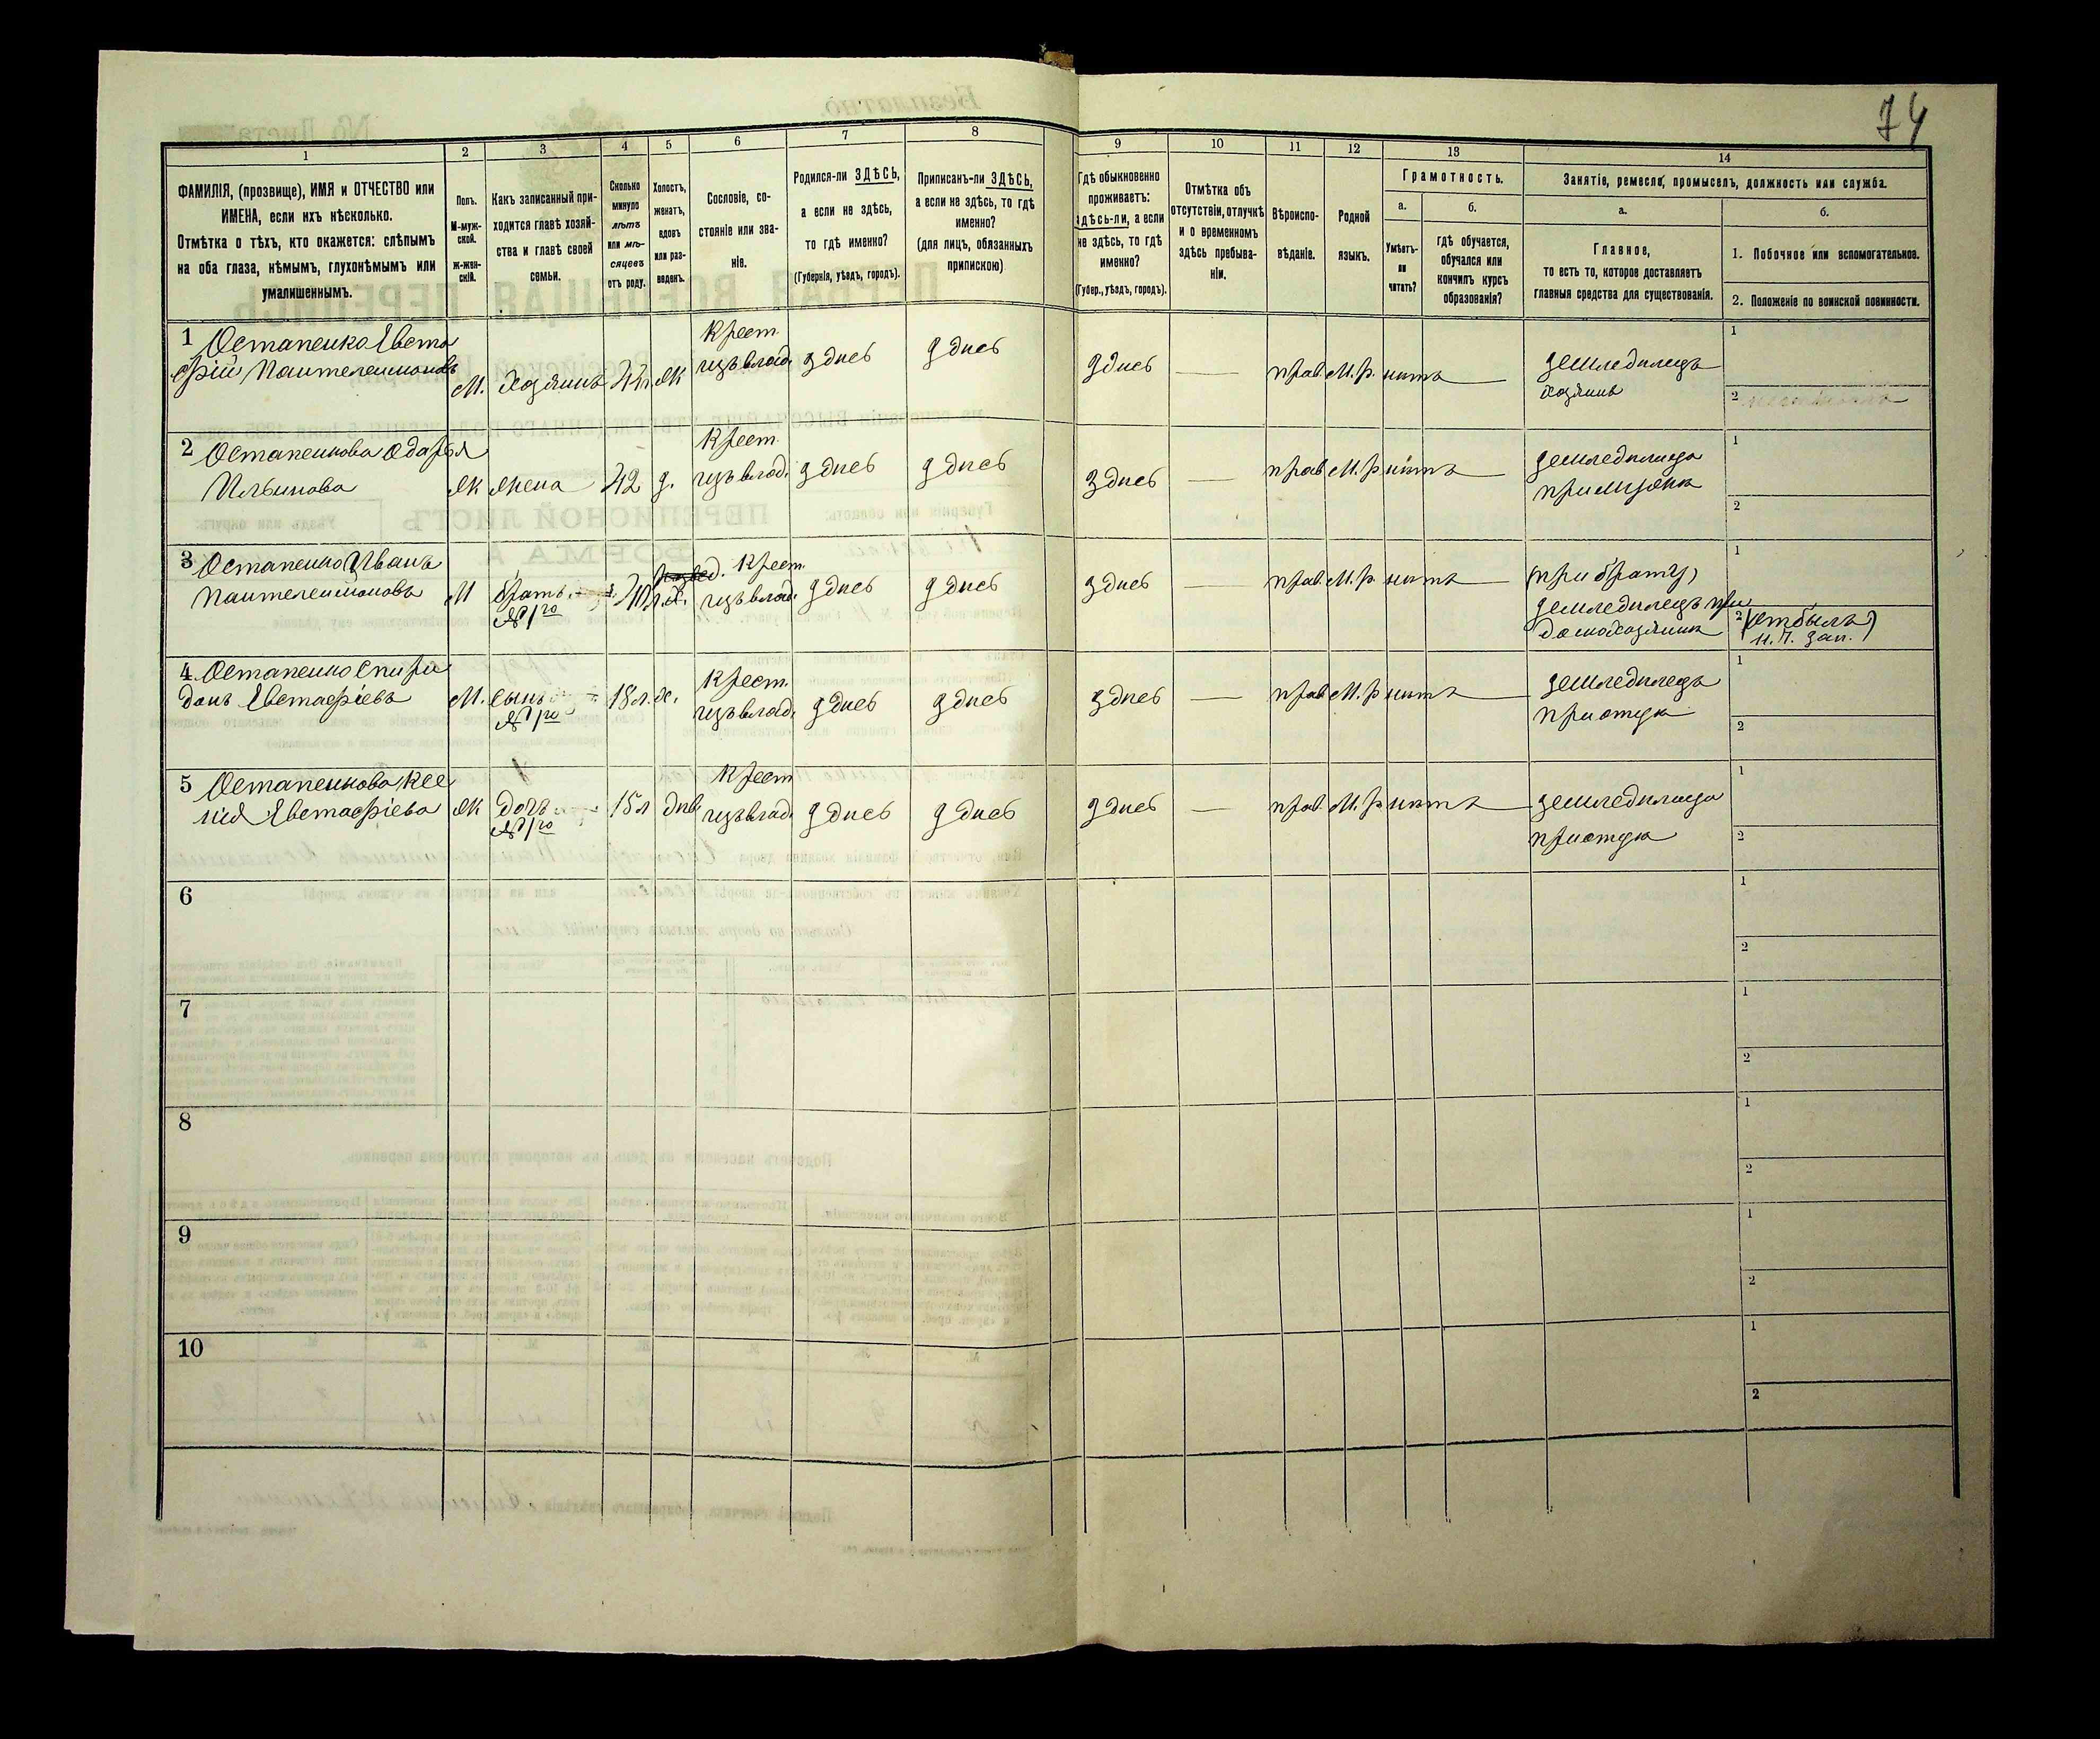 74
1
2
3
4
5
6
7
8
9
10
11
12
13
14
ФАМИЛІЯ, (прозвище), ИМЯ и ОТЧЕСТВО или
ИМЕНА, если ихъ нѣсколько.
Отмѣтка о тѣхъ, кто окажется: слѣпымъ
на оба глаза, нѣмымъ, глухонѣмымъ или
умалишеннымъ.
Полъ.
М-муж-
ской.
Ж-жен-
скій.
Какъ записанный при-
ходится главѣ хозяй-
ства и главѣ своей
семьи.
Сколько
минуло
лѣтъ
или мѣ-
сяцевъ
отъ роду.
Холостъ,
женатъ,
вдовъ
или раз-
веденъ.
Сословіе, со-
стояніе или зва-
ніе.
Родился-ли ЗДѢСЬ,
а если не здѣсь,
то гдѣ именно?
(Губернія, уѣздъ, городъ).
Приписанъ-ли ЗДѢСЬ,
а если не здѣсь, то гдѣ
именно?
(для лицъ, обязанныхъ
припискою)
Гдѣ обыкновенно
проживаетъ:
здѣсь-ли, а если
не здѣсь, то гдѣ
именно?
(Губер., уѣздъ, городъ).
Отмѣтка объ
отсутствіи, отлучкѣ
и о временномъ
здѣсь пребыва-
ніи.
Вѣроиспо-
вѣданіе.
Родной
языкъ.
Грамотность.
а.
Умѣетъ-
ли
читать?
б.
гдѣ обучается,
обучался или
кончилъ курсъ
образованія?
Занятіе, ремесло, промыселъ, должность или служба.
а.
Главное,
то есть то, которое доставляетъ
главныя средства для существованія.
б.
1. Побочное или вспомогательное.
2. Положеніе по воинской повинности.
1 Остапенко Евста
фій Пантелеимоновъ
М. Хозяинъ 44 ж Крест.
изъ влад. здесь здесь здесь — прав. М. р. нетъ —
земледелецъ
хозяинъ
1
2
2 Остапенкова Одарья
Ильинова
ж жена 42 з. Крест.
изъ влад. здесь здесь здесь — прав. М. р. нетъ —
земледелица
при мужѣ
1
2
3 Остапенко Иванъ
Пантелеимоновъ
М братъ
№ 1го
х. Крест.
изъ влад. здесь здесь здесь — прав. М. р. нетъ —
(при брату)
земледелецъ при
домохозяине
1
2
н. ч. зап.)
4 Остапенко Спири
донъ Евстафіевъ
М. сынъ
№ 1го
18 л. х. Крест.
изъ влад. здесь здесь здесь — прав М. р. нетъ —
земледелецъ
при отце
1
2
5 Остапенкова Ксе
нія Евстафіева
ж дочь
№ 1го
15 л дев Крест
изъ влад. здесь здесь здесь — прав. М. р. нетъ —
земледелица
при отце
1
2
6
1
2
7
1
2
8
1
2
9
1
2
10
1
2